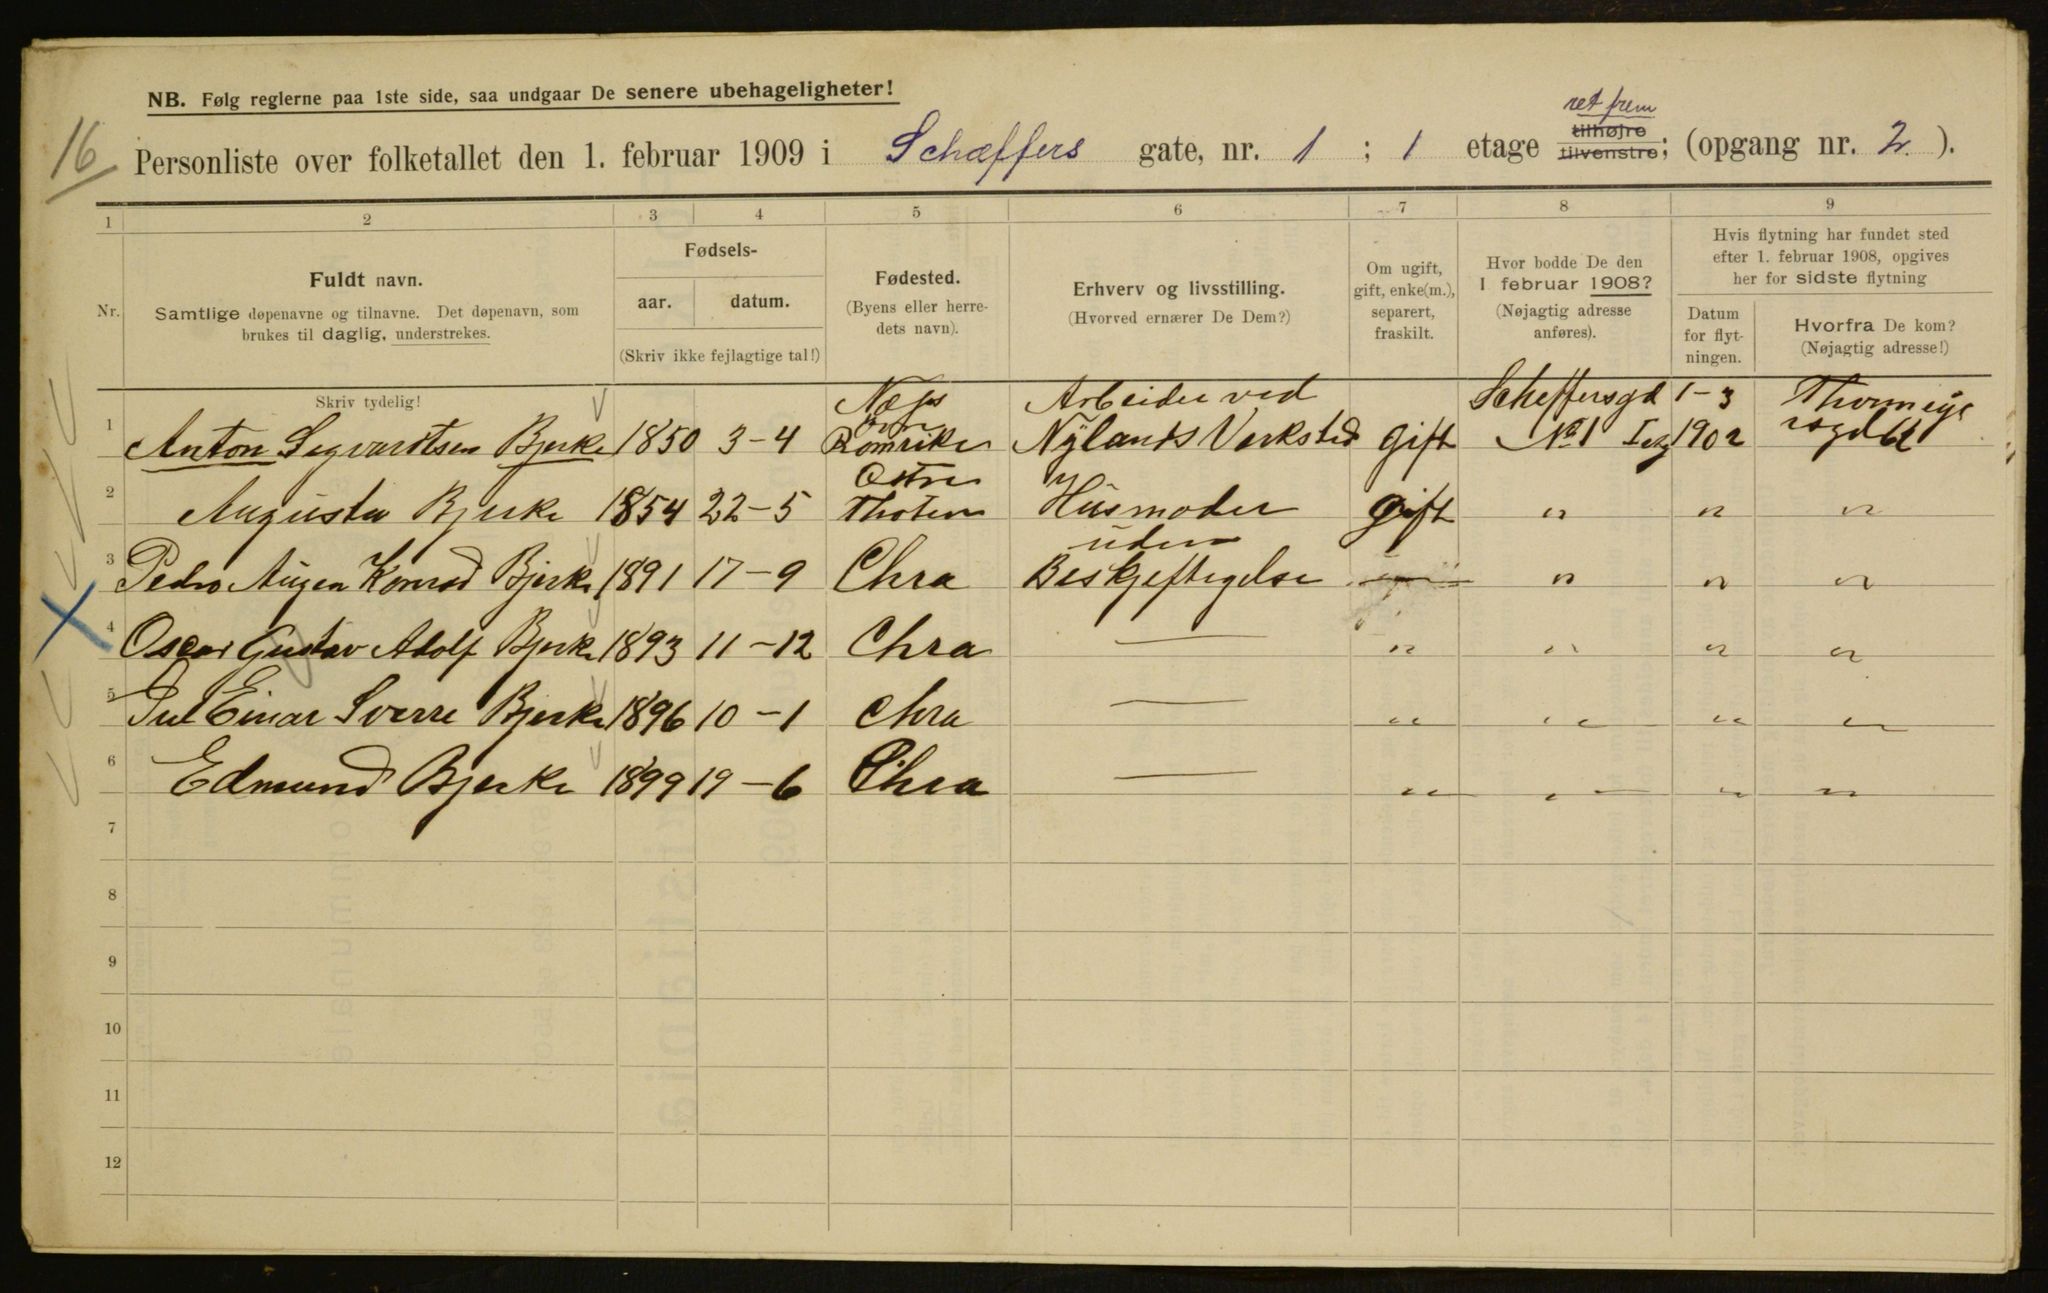 NB. Følg reglerne paa 1ste side, saa undgaar De senere ubehageligheter!
16
ret frem
Personliste over folketallet den 1. februar 1909 i Schæffers gate, nr. 1 ; 1 etage tilhøjre tilvenstre; (opgang nr. 2. ).
1 2 3 4 5 6 7 8 9
Nr.
Fuldt navn.
Samtlige døpenavne og tilnavne. Det døpenavn, som
brukes til daglig, understrekes.
Skriv tydelig!
Fødsels-
aar. datum.
(Skriv ikke fejlagtige tal!)
Fødested.
(Byens eller herre-
dets navn).
Erhverv og livsstilling.
(Hvorved ernærer De Dem?)
Om ugift,
gift, enke(m.),
separert,
fraskilt.
Hvor bodde De den
1 februar 1908?
(Nøjagtig adresse
anføres).
Hvis flytning har fundet sted
efter 1. februar 1908, opgives
her for sidste flytning
Datum
for flyt-
ningen.
Hvorfra De kom?
(Nøjagtig adresse!)
Næs Arbeider ved Scheffersgd 1-3
1 Anton Segvardtsen Bjerke 1850 3-4 Romrike Nÿlands Verksted gift No 1 1902
Østre
2 Augusta Bjerke 1854 22-5 Thoten Husmoder gift " " "
uden
3 Pedro Augen Konrad Bjerke 1891 17-9 Chra Beskjeftigelse " " "
4 Oscar Gustav Adolf Bjerke 1893 11-12 Chra — " " " "
5 Einar Sverre Bjerke 1896 10-1 Chra — " " " "
6 Edmund Bjerke 1899 19-6 Chra — " " " "
7
8
9
10
11
12